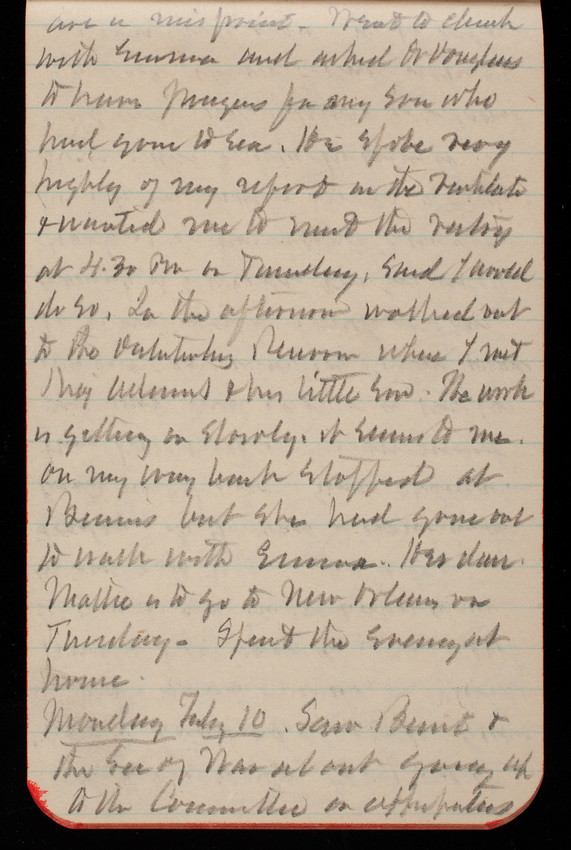 are a misprint - Went to church
with Emma and asked Dr Douglas
to have prayers for my son who
had gone to sea. He spoke very
highly of my report on the Ventilate
& wanted me to meet the vestry
at 4.30 Pm on Tuesday, Said I would
do so. In the afternoon walked out
to the Distributing Reservoir where I met
Maj & his little son. The work
is getting on slowly it seems to me.
On my way back stopped at
but she had gone out
to walk with Emma. Her dau.
Mattie is to go to New Orleans on
Tuesday - Spent the evening at
home.
Monday Feby 10. Saw Benet &
the Sec of War about going up
to the Committee on